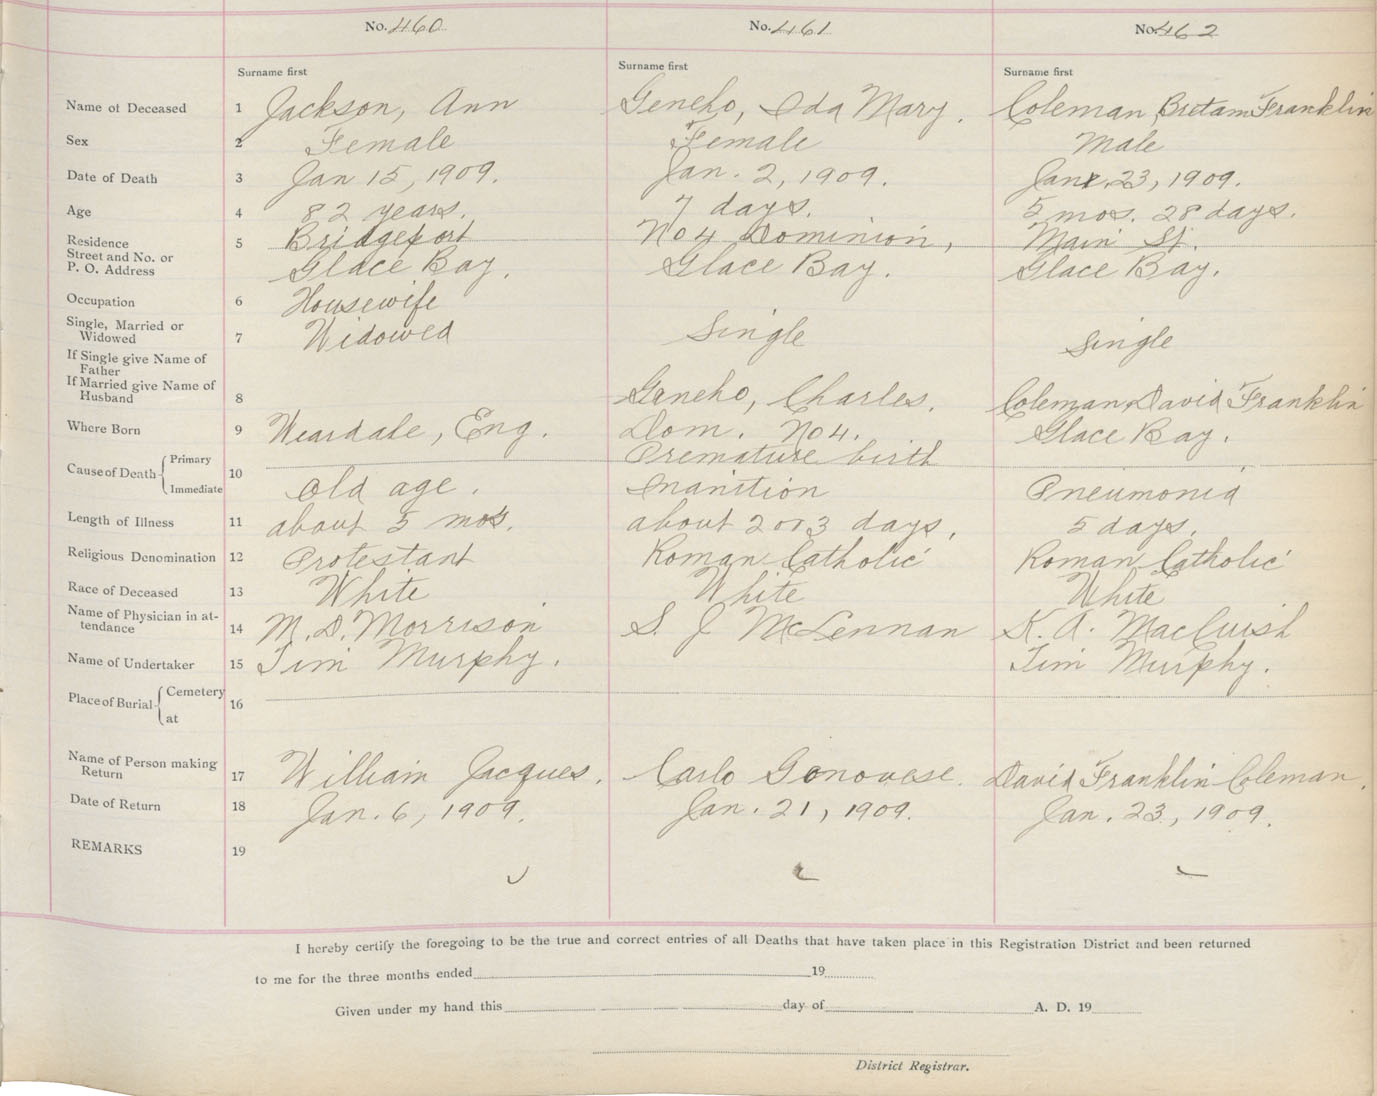 No. 460 No. 461 No. 462
Surname first Surname first Surname first
Name of Deceased 1 Jackson, Ann Geneho, Ida Mary. Coleman Bretam Franklin
Sex 2 Female Female Male
Date of Death 3 Jan 15, 1909. Jan. 2, 1909. Jan. 23, 1909.
Age 4 82 years. 7 days. 5 mos. 28 days.
Residence 5 Bridgeport No 4 Dominion, Main St.
Street and No. or
P. O. Address Glace Bay. Glace Bay. Glace Bay.
Occupation 6 Housewife
Single, Married or
Widowed 7 Widowed Single Single
If Single give Name of
Father
If Married give Name of
Husband 8 Geneho, Charles. Coleman, David Franklin
Where Born 9 Weardale, Eng. Dom. No 4. Glace Bay.
Cause of Death Primary 10 Premature birth
Immediate Old age. Inanition Pneumonia
Length of Illness 11 about 5 mos. about 2 or 3 days. 5 days.
Religious Denomination 12 Protestant Roman Catholic Roman Catholic
Race of Deceased 13 White White White
Name of Physician in at-
tendance 14 M. D. Morrison S. J McLennan K. A. MacCuish
Name of Undertaker 15 Tim Murphy. Tim Murphy.
Place of Burial Cemetery 16
at
Name of Person making
Return 17 William Jacques. Carlo Genovese. David Franklin Coleman.
Date of Return 18 Jan. 6, 1909. Jan. 21, 1909. Jan. 23, 1909.
REMARKS 19
I hereby certify the foregoing to be the true and correct entries of all Deaths that have taken place in this Registration District and been returned
to me for the three months ended 19
Given under my hand this day of A. D. 19
District Registrar.